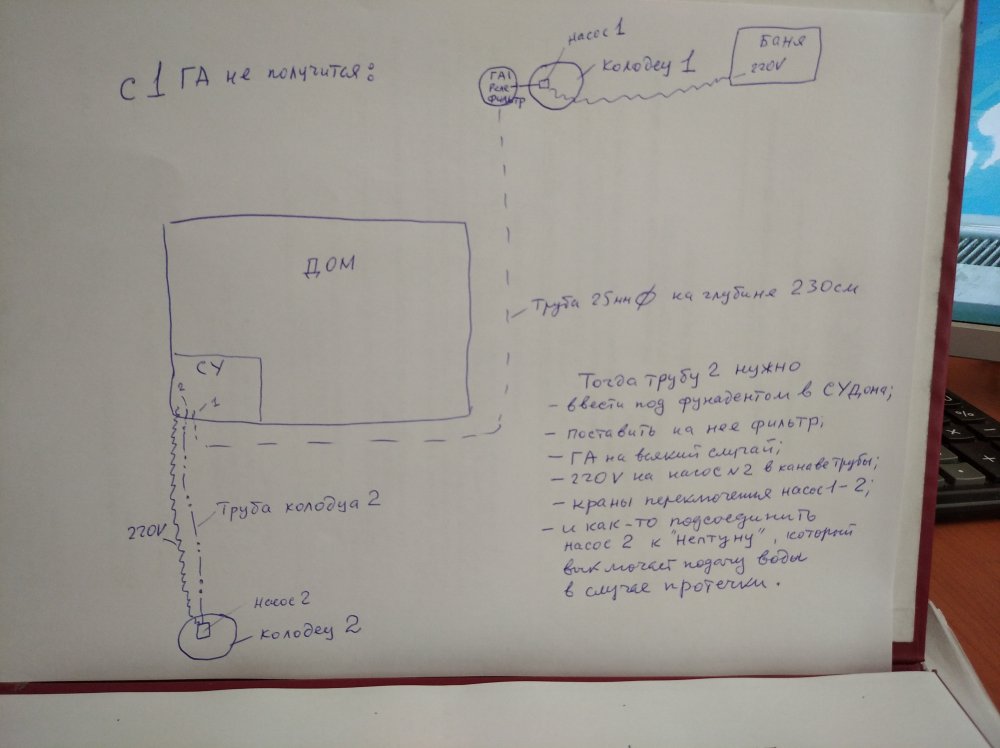 с 1 ГА не получится:
насос 1
Баня
220V
ГА1
Реле
Фильтр
колодец 1
ДОМ
СУ
2
1
Труба 25мм Ø на глубине 230см
Тогда трубу 2 нужно
- ввести под фунадентом в СУ Дома;
- поставить на нее фильтр;
- ГА на всякий случай;
- 220V на насос N2 в канаве трубы;
- краны переключения насос 1-2;
- и как-то подсоединить
насос 2 к "Нептуну", который
выключает подачу воды
в случае протечки.
Труба колодца 2
220V
насос 2
колодец 2